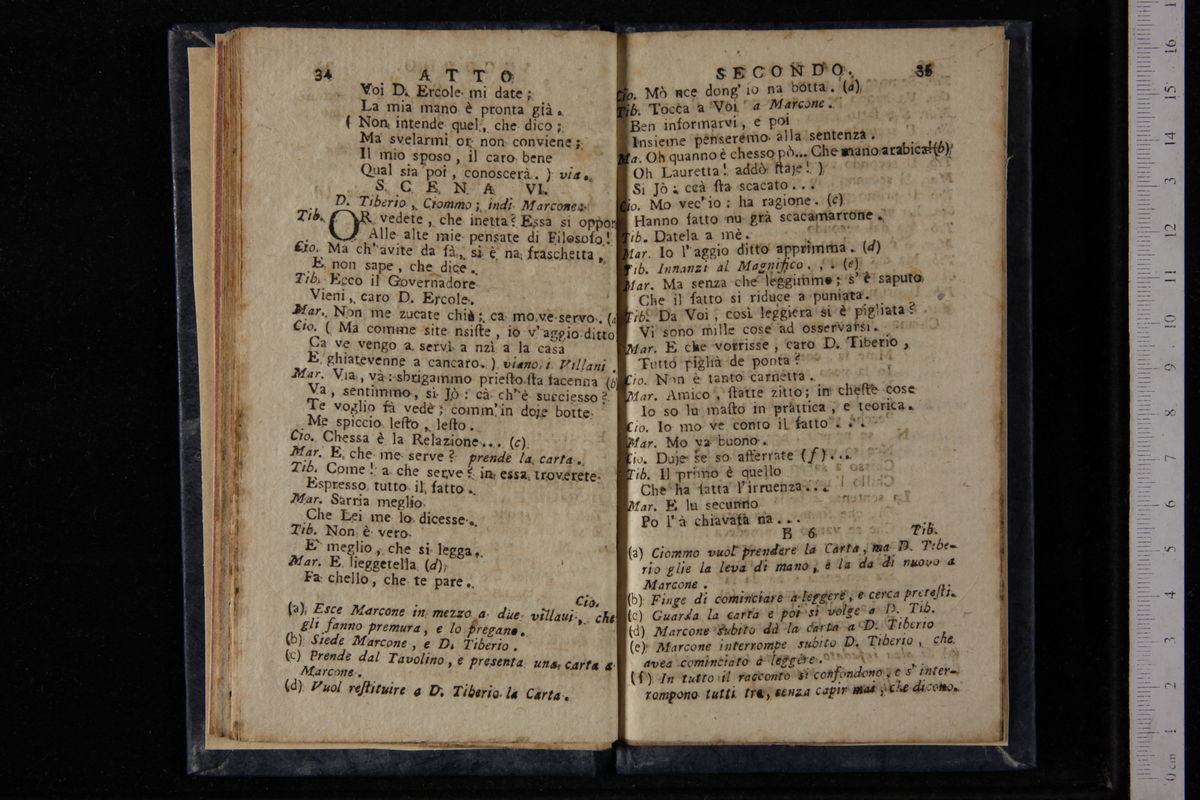 34 ATTO
Voi D. Ercole mi date;
La mia mano è pronta già.
( Non intende quel, che dico;
Ma svelarmi or non conviene;
Il mio sposo, il caro bene
Qual sia poi, conoscerà. ) via.
SCENA VI.
D. Tiberio, Ciommo; indi Marcone.
Tib. OR vedete, che inetta? Essa si oppon
Alle alte mie pensate di Filosofo!
Cio. Ma ch'avite da fà, si è na fraschetta,
E non sape, che dice.
Tib. Ecco il Governadore
Vieni, caro D. Ercole.
Mar. Non me zucate chiù; ca mo ve servo. (a
Cio. ( Ma comme site nsiste, io v'aggio ditto
Ca ve vengo a servì a nzì a la casa
E ghiatevenne a cancaro. ) viano i Villani.
Mar. Via, và: sbrigammo priesto sta facenna (b)
Va, sentimmo, si Jò: ca ch'è succiesso?
Te voglio fà vedè; comm'in doje botte
Me spiccio lesto, lesto.
Cio. Chessa è la Relazione... (c)
Mar. E che me serve? prende la carta.
Tib. Come! a che serve? in essa troverete
Espresso tutto il fatto.
Mar. Sarria meglio
Che Lei me lo dicesse.
Tib. Non è vero
E' meglio, che si legga.
Mar. E lieggetella (d);
Fa chello, che te pare.
Cio.
(a) Esce Marcone in mezzo a due villani, che
gli fanno premura, e lo pregano.
(b) Siede Marcone, e D. Tiberio.
(c) Prende dal Tavolino, e presenta una carta a
Marcone.
(d) Vuol restituire a D. Tiberio la Carta.
SECONDO. 35
Cio. Mò nce dong'io na botta. (a)
Tib. Tocca a Voi a Marcone.
Ben informarvi, e poi
Insieme penseremo alla sentenza.
Ma. Oh quanno è chesso pò... Che mano arabica! (b)
Oh Lauretta! addò staje! )
Si Jò: ccà sta scacato...
Cio. Mo vec'io: ha ragione. (c)
Hanno fatto nu grà scacamarrone.
Tib. Datela a mè.
Mar. Io l'aggio ditto apprimma. (d)
Tib. Innanzi al Magnifico... (e)
Mar. Ma senza che leggimmo; s'è saputo
Che il fatto si riduce a puniata.
Tib. Da Voi, così leggiera si è pigliata?
Vi sono mille cose ad osservarsi.
Mar. E che vorrisse, caro D. Tiberio,
Tutto piglià de ponta?
Cio. Non è tanto carnetta.
Mar. Amico, statte zitto; in cheste cose
Io so lu masto in prattica, e teorica.
Cio. Io mo ve conto il fatto...
Mar. Mo va buono.
Cio. Duje se so afferrate (f)...
Tib. Il primo è quello
Che ha fatta l'irruenza...
Mar. E lu secunno
Po l'à chiavata na...
B 6 Tib.
(a) Ciommo vuol prendere la Carta, ma D. Tibe-
rio glie la leva di mano, è la da di nuovo a
Marcone.
(b) Finge di cominciare a leggere, e cerca pretesti.
(c) Guarda la carta e poi si volge a D. Tib.
(d) Marcone subito dà la carta a D. Tiberio
(e) Marcone interrompe subito D. Tiberio, che
avea cominciato a leggere.
(f) In tutto il racconto si confondono, e s'inter-
rompono tutti tre, senza capir mai, che dicono.